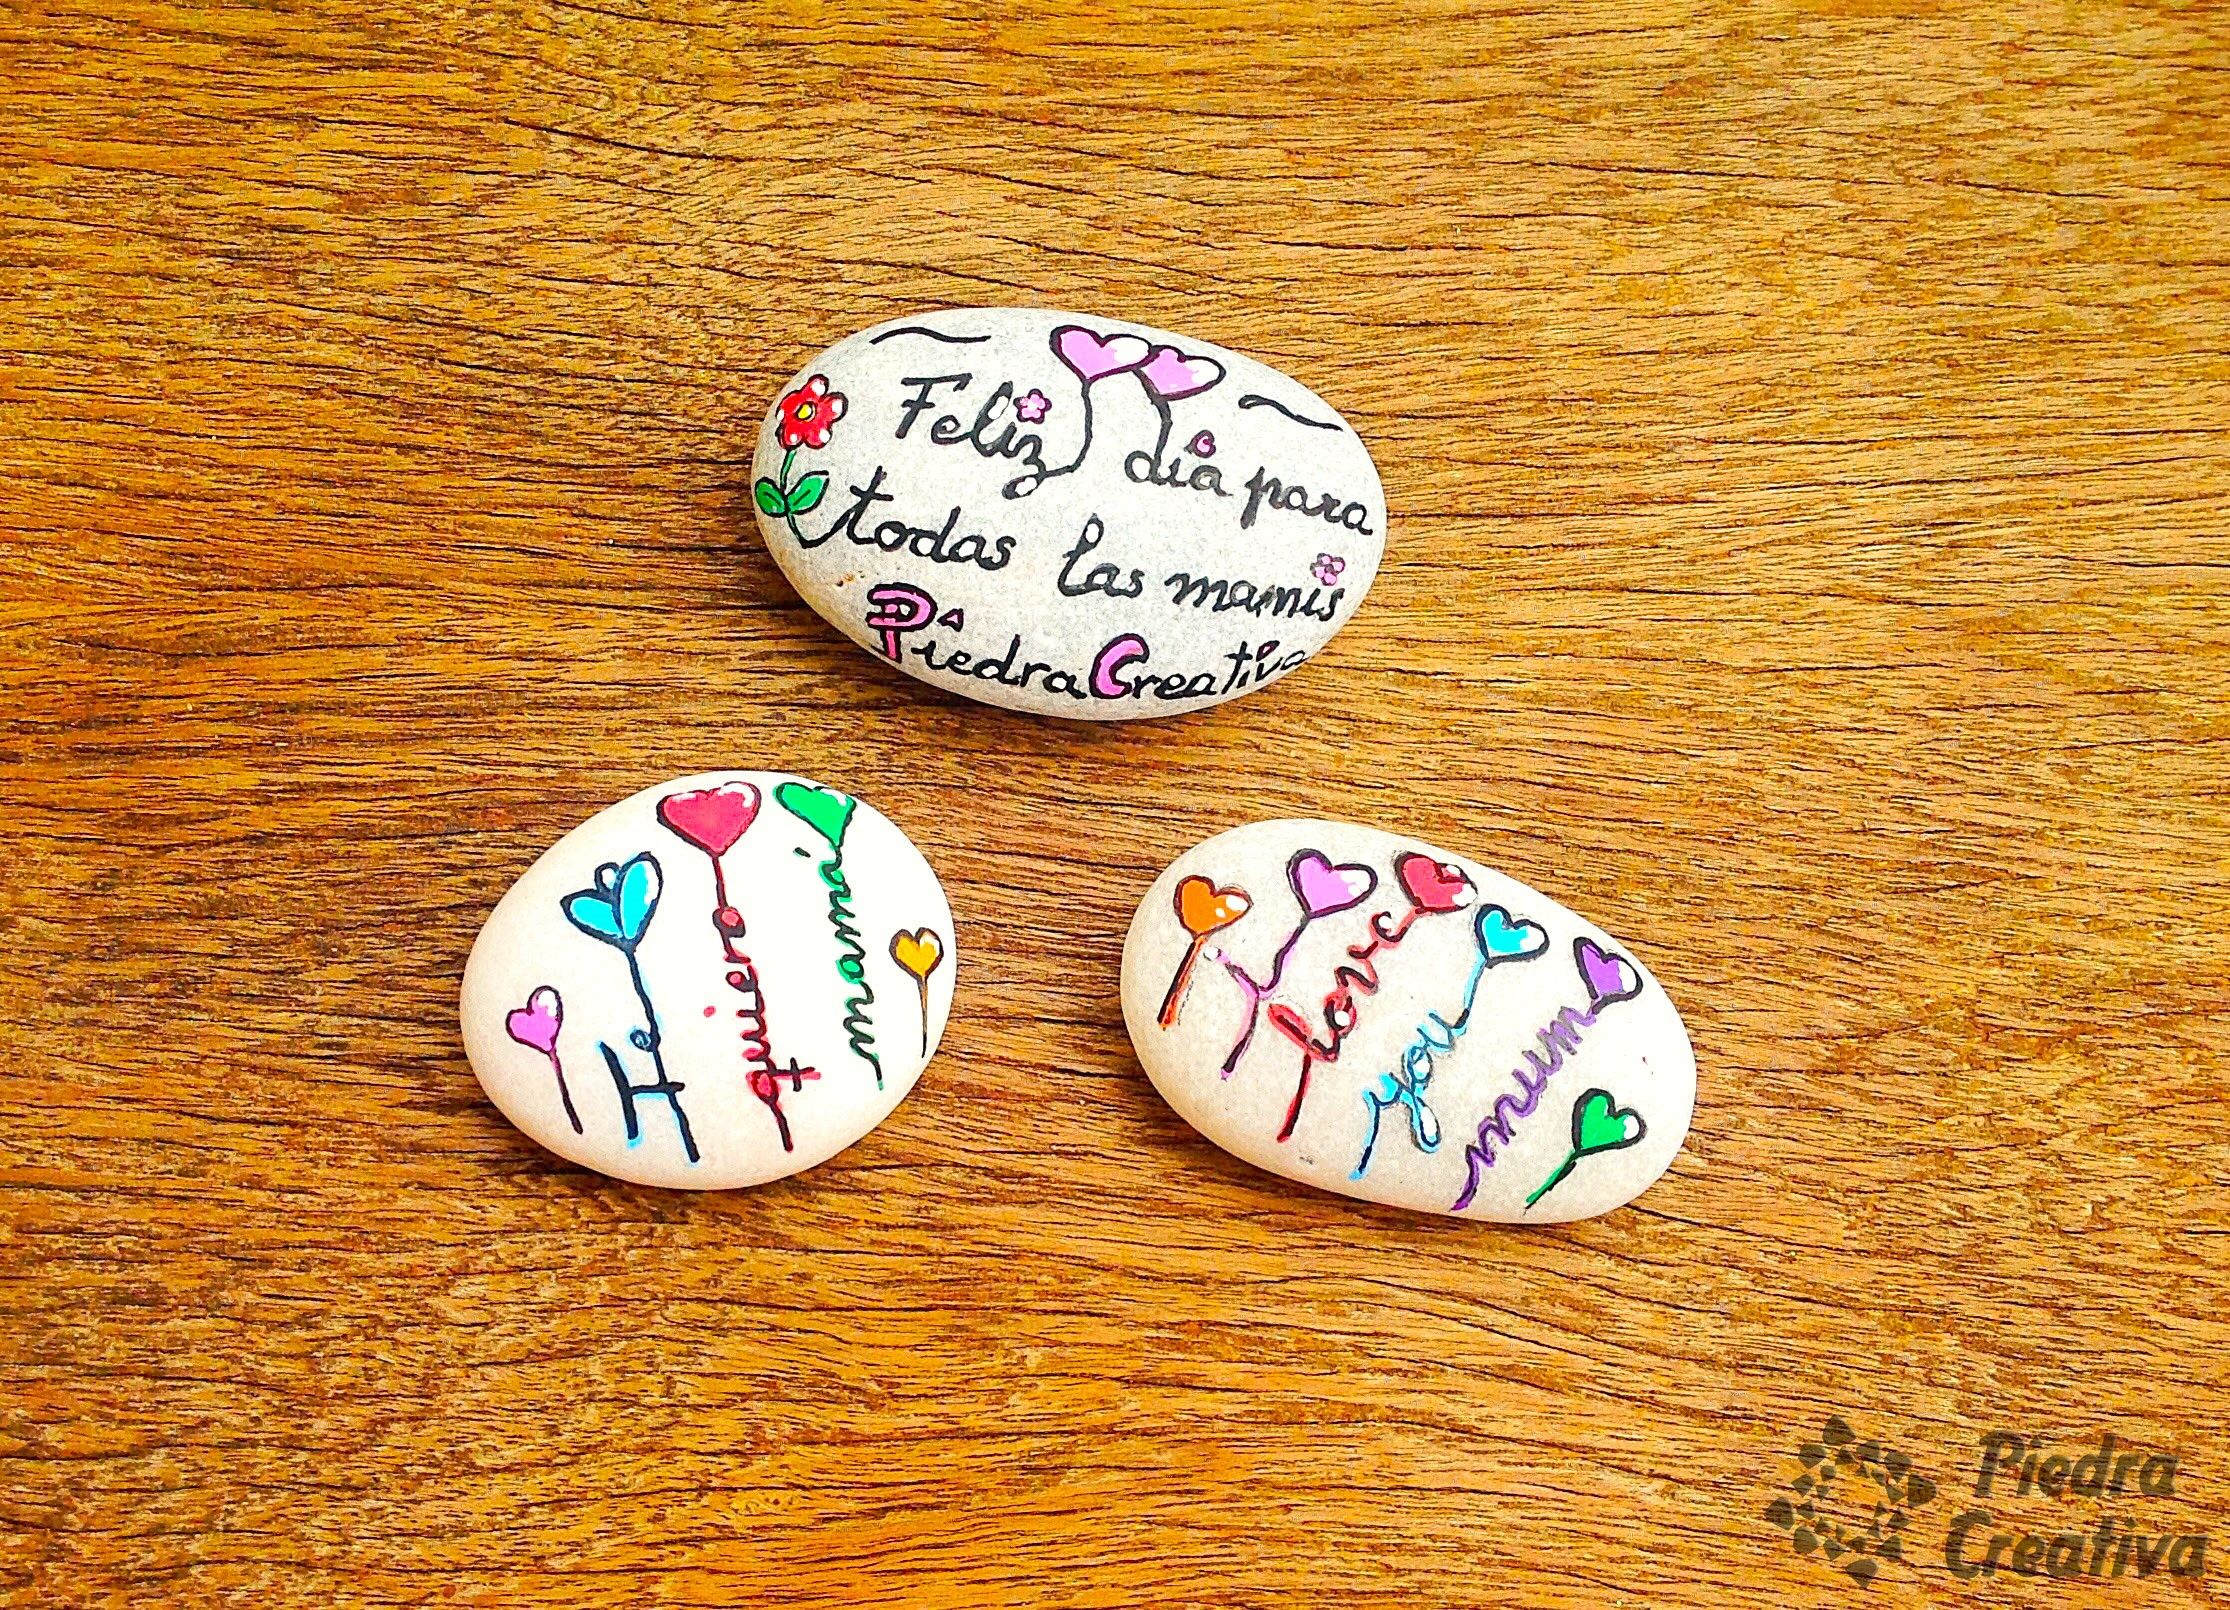 Feliz día para
todas las mamis
Piedra Creativa
Te
quiero
mami
I
love
you
mum
Piedra
Creativa